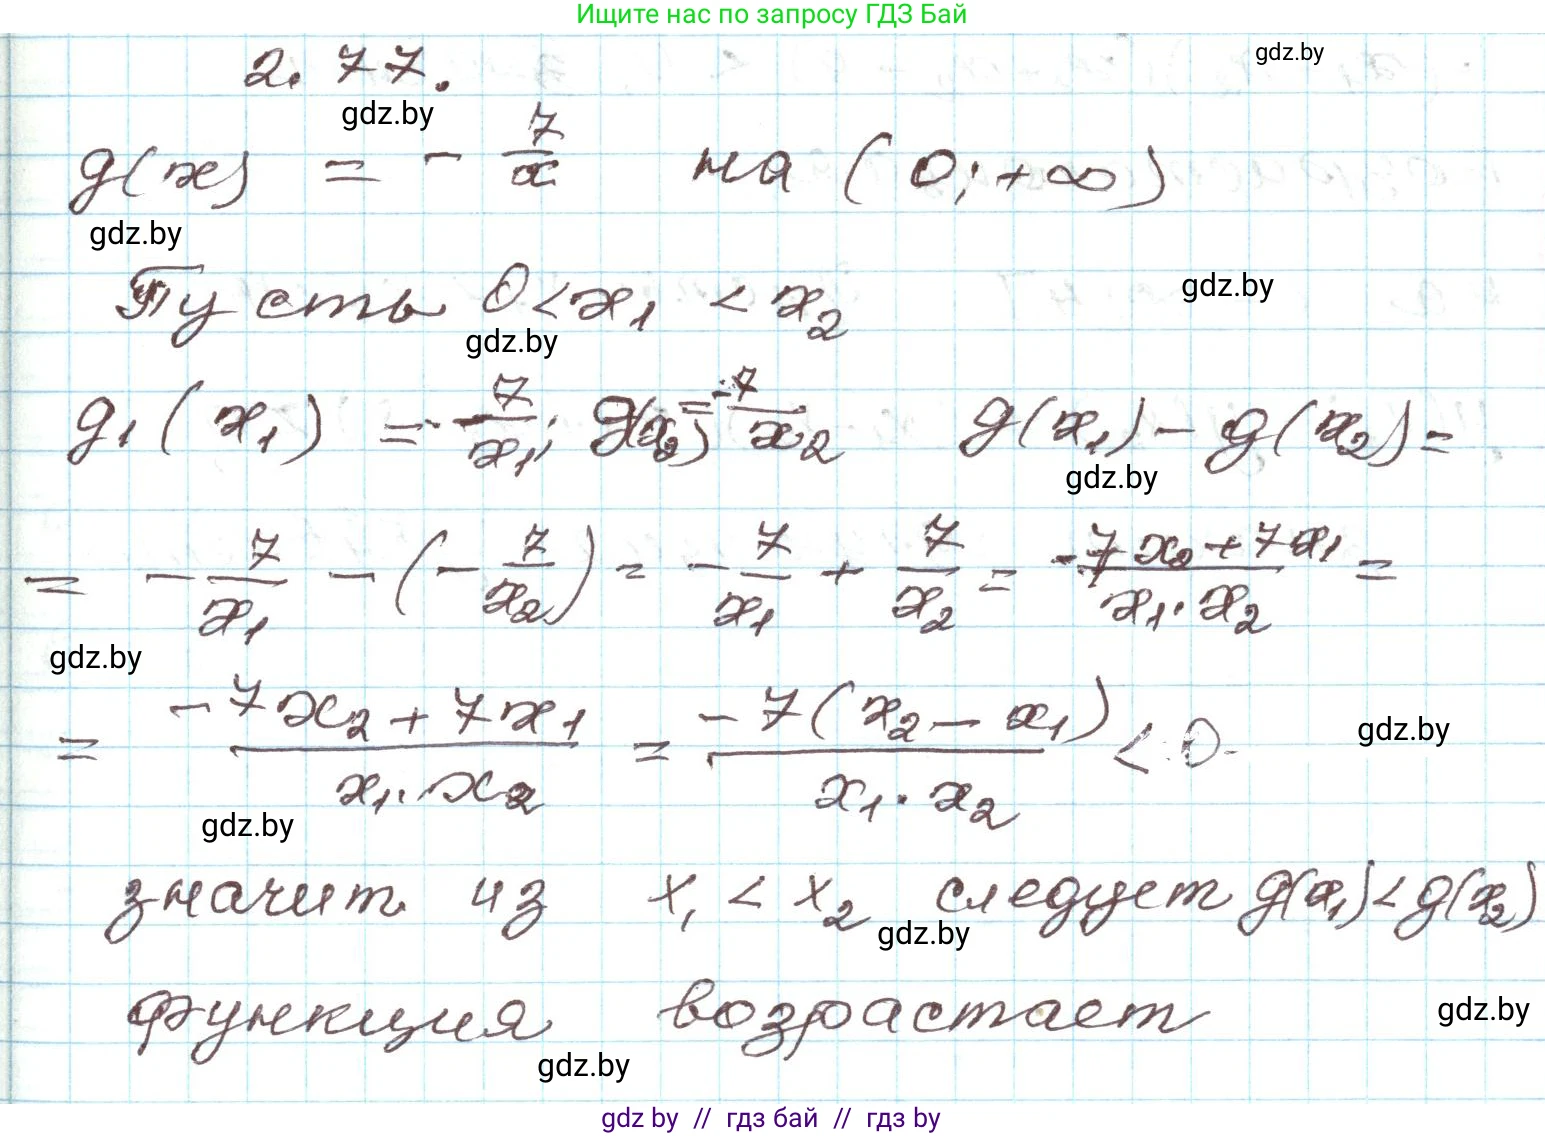 Ищите нас по запросу ГДЗ Бай
gdz.by
2.77.
gdz.by
g(x) = - 7/x на (0; +∞)
gdz.by
Пусть 0 < x₁ < x₂
gdz.by
gdz.by
g₁(x₁) = - 7/x₁; g(x₂) = -7/x₂ g(x₁) - g(x₂) =
gdz.by
= - 7/x₁ - (- 7/x₂) = - 7/x₁ + 7/x₂ = (-7x₂ + 7x₁)/(x₁ · x₂) =
gdz.by
= (-7x₂ + 7x₁)/(x₁ · x₂) = (-7(x₂ - x₁))/(x₁ · x₂) < 0
gdz.by
gdz.by
значит из x₁ < x₂ следует g(x₁) < g(x₂)
gdz.by
функция возрастает
gdz.by
gdz.by
gdz by // гдз бай // гдз by